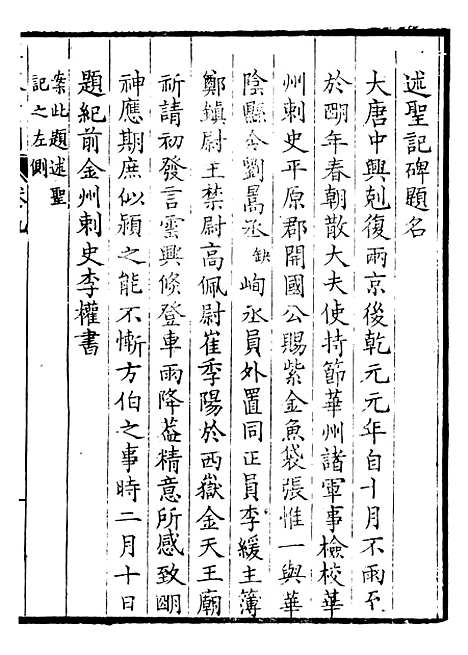 述聖記碑題名
大唐中興剋復兩京後乾元元年自十月不雨至
於明年春朝散大夫使持節華州諸軍事檢校華
州刺史平原郡開國公賜紫金魚袋張惟一與華
陰縣令劉暠丞缺峋丞員外置同正員李緩主簿
鄭鎮尉王禁尉高佩尉崔季陽於西嶽金天王廟
祈請初發言雲興倐登車雨降蓋精意所感致明
神應期庶似潁之能不慚方伯之事時二月十日
題紀前金州刺史李權書
案此題述聖
記之左側
卷九